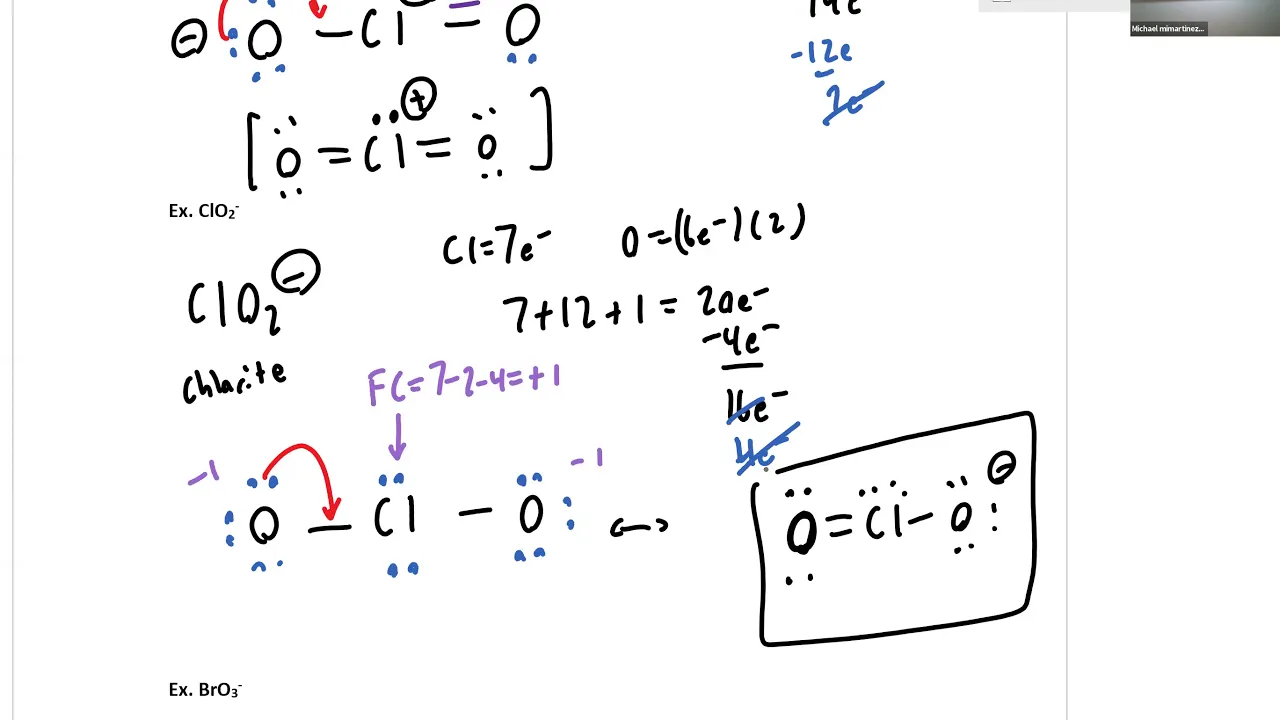 14e
⊖ O – Cl = O
-12e
2e⁻
[O = Cl⊕ = O]
Ex. ClO₂⁻
Cl=7e⁻ O=(6e⁻)(2)
ClO₂⊖
7+12+1 = 20e⁻
-4e⁻
chlorite
FC=7-2-4=+1
16e⁻
4e⁻
-1 -1
O – Cl – O ↔ [O = Cl – O ⊖
Ex. BrO₃⁻
Michael mimartinez...